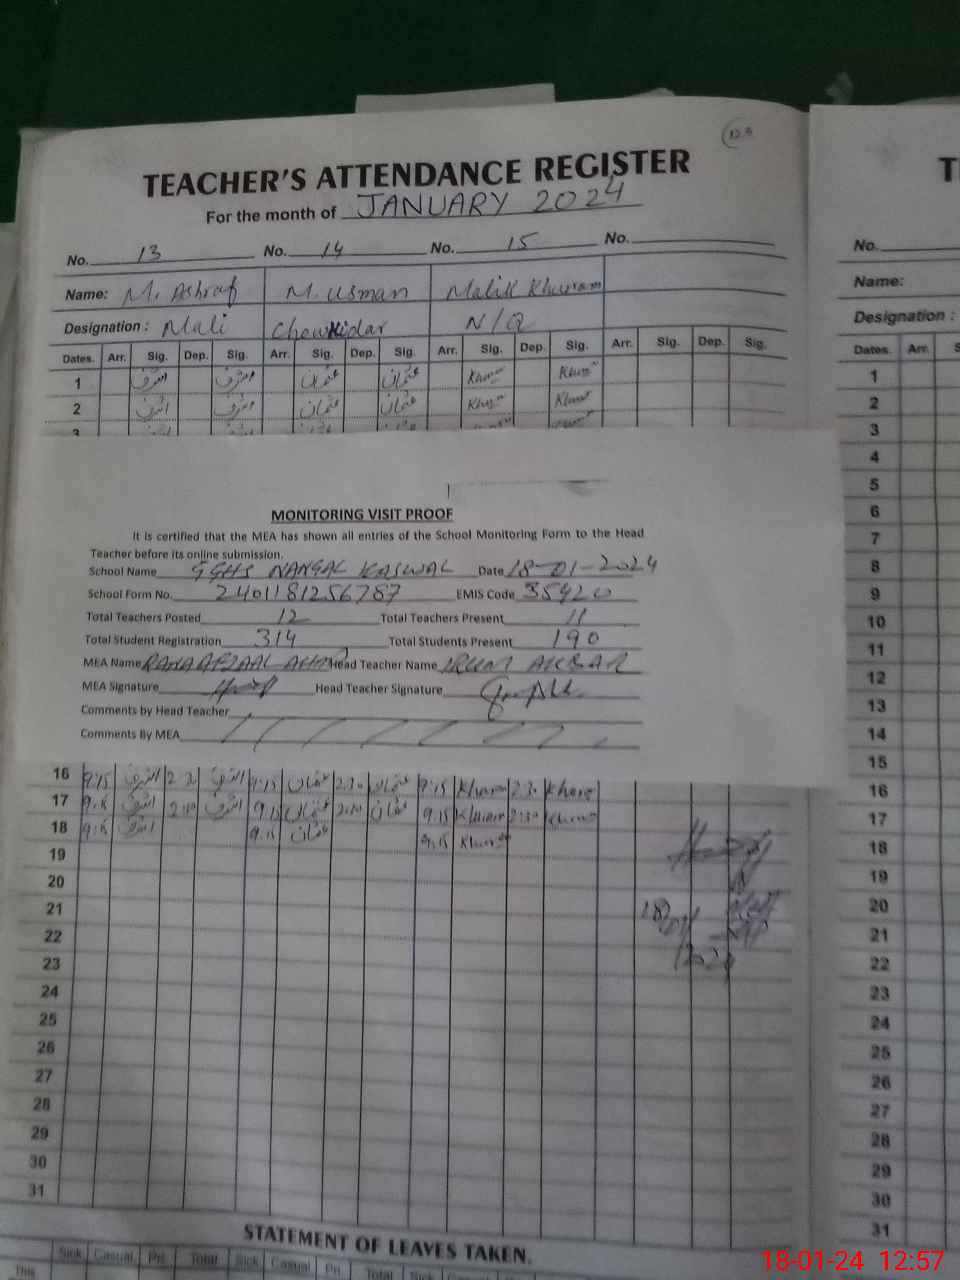 TEACHER'S ATTENDANCE REGISTER
For the month of JANUARY 2024
No. 13 No. 14 No. 15 No.
Name: M. Ashraf M. Usman Malik Khuram
Designation: Mali Chowkidar N/Q
Dates. Arr. Sig. Dep. Sig. Arr. Sig. Dep. Sig. Arr. Sig. Dep. Sig. Arr. Sig. Dep. Sig.
1 اشرف اشرف عثمان عثمان
2 اشرف اشرف عثمان عثمان
3
MONITORING VISIT PROOF
It is certified that the MEA has shown all entries of the School Monitoring Form to the Head
Teacher before its online submission.
School Name GGHS NANGAL KASWAL Date 18-01-2024
School Form No. 2401181256787 EMIS Code 35920
Total Teachers Posted 12 Total Teachers Present 11
Total Student Registration 314 Total Students Present 190
MEA Name RANA AFZAAL Head Teacher Name IRUM AKBAR
MEA Signature Head Teacher Signature
Comments by Head Teacher
Comments By MEA
16 9:15 اشرف اشرف 9:15 عثمان 2:30 عثمان 9:15 Khuram 2:30
17 9:15 اشرف اشرف 9:15 عثمان عثمان 9:15 Khuram 2:30
18 9:15 اشرف 9:15 عثمان 9:15 Khuram
19
20
21
22
23
24
25
26
27
28
29
30
31
18/01/2024
STATEMENT OF LEAVES TAKEN.
Sick Casual Pri. Total Sick Casual Pri. Total Sick Casual
This
No.
Name:
Designation :
Dates. Arr.
1
2
3
4
5
6
7
8
9
10
11
12
13
14
15
16
17
18
19
20
21
22
23
24
25
26
27
28
29
30
31
18-01-24 12:57